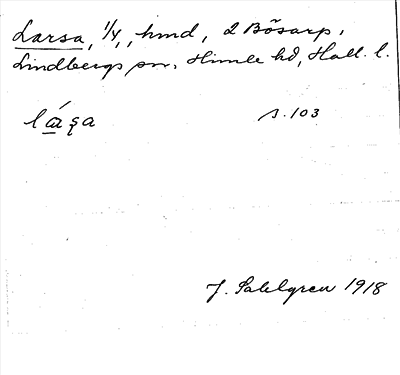 Larsa, 1/4, hmd, 2 Bösarp,
Lindbergs sn, Himle hd, Hall. l.
lása s. 103
J. Sahlgren 1918